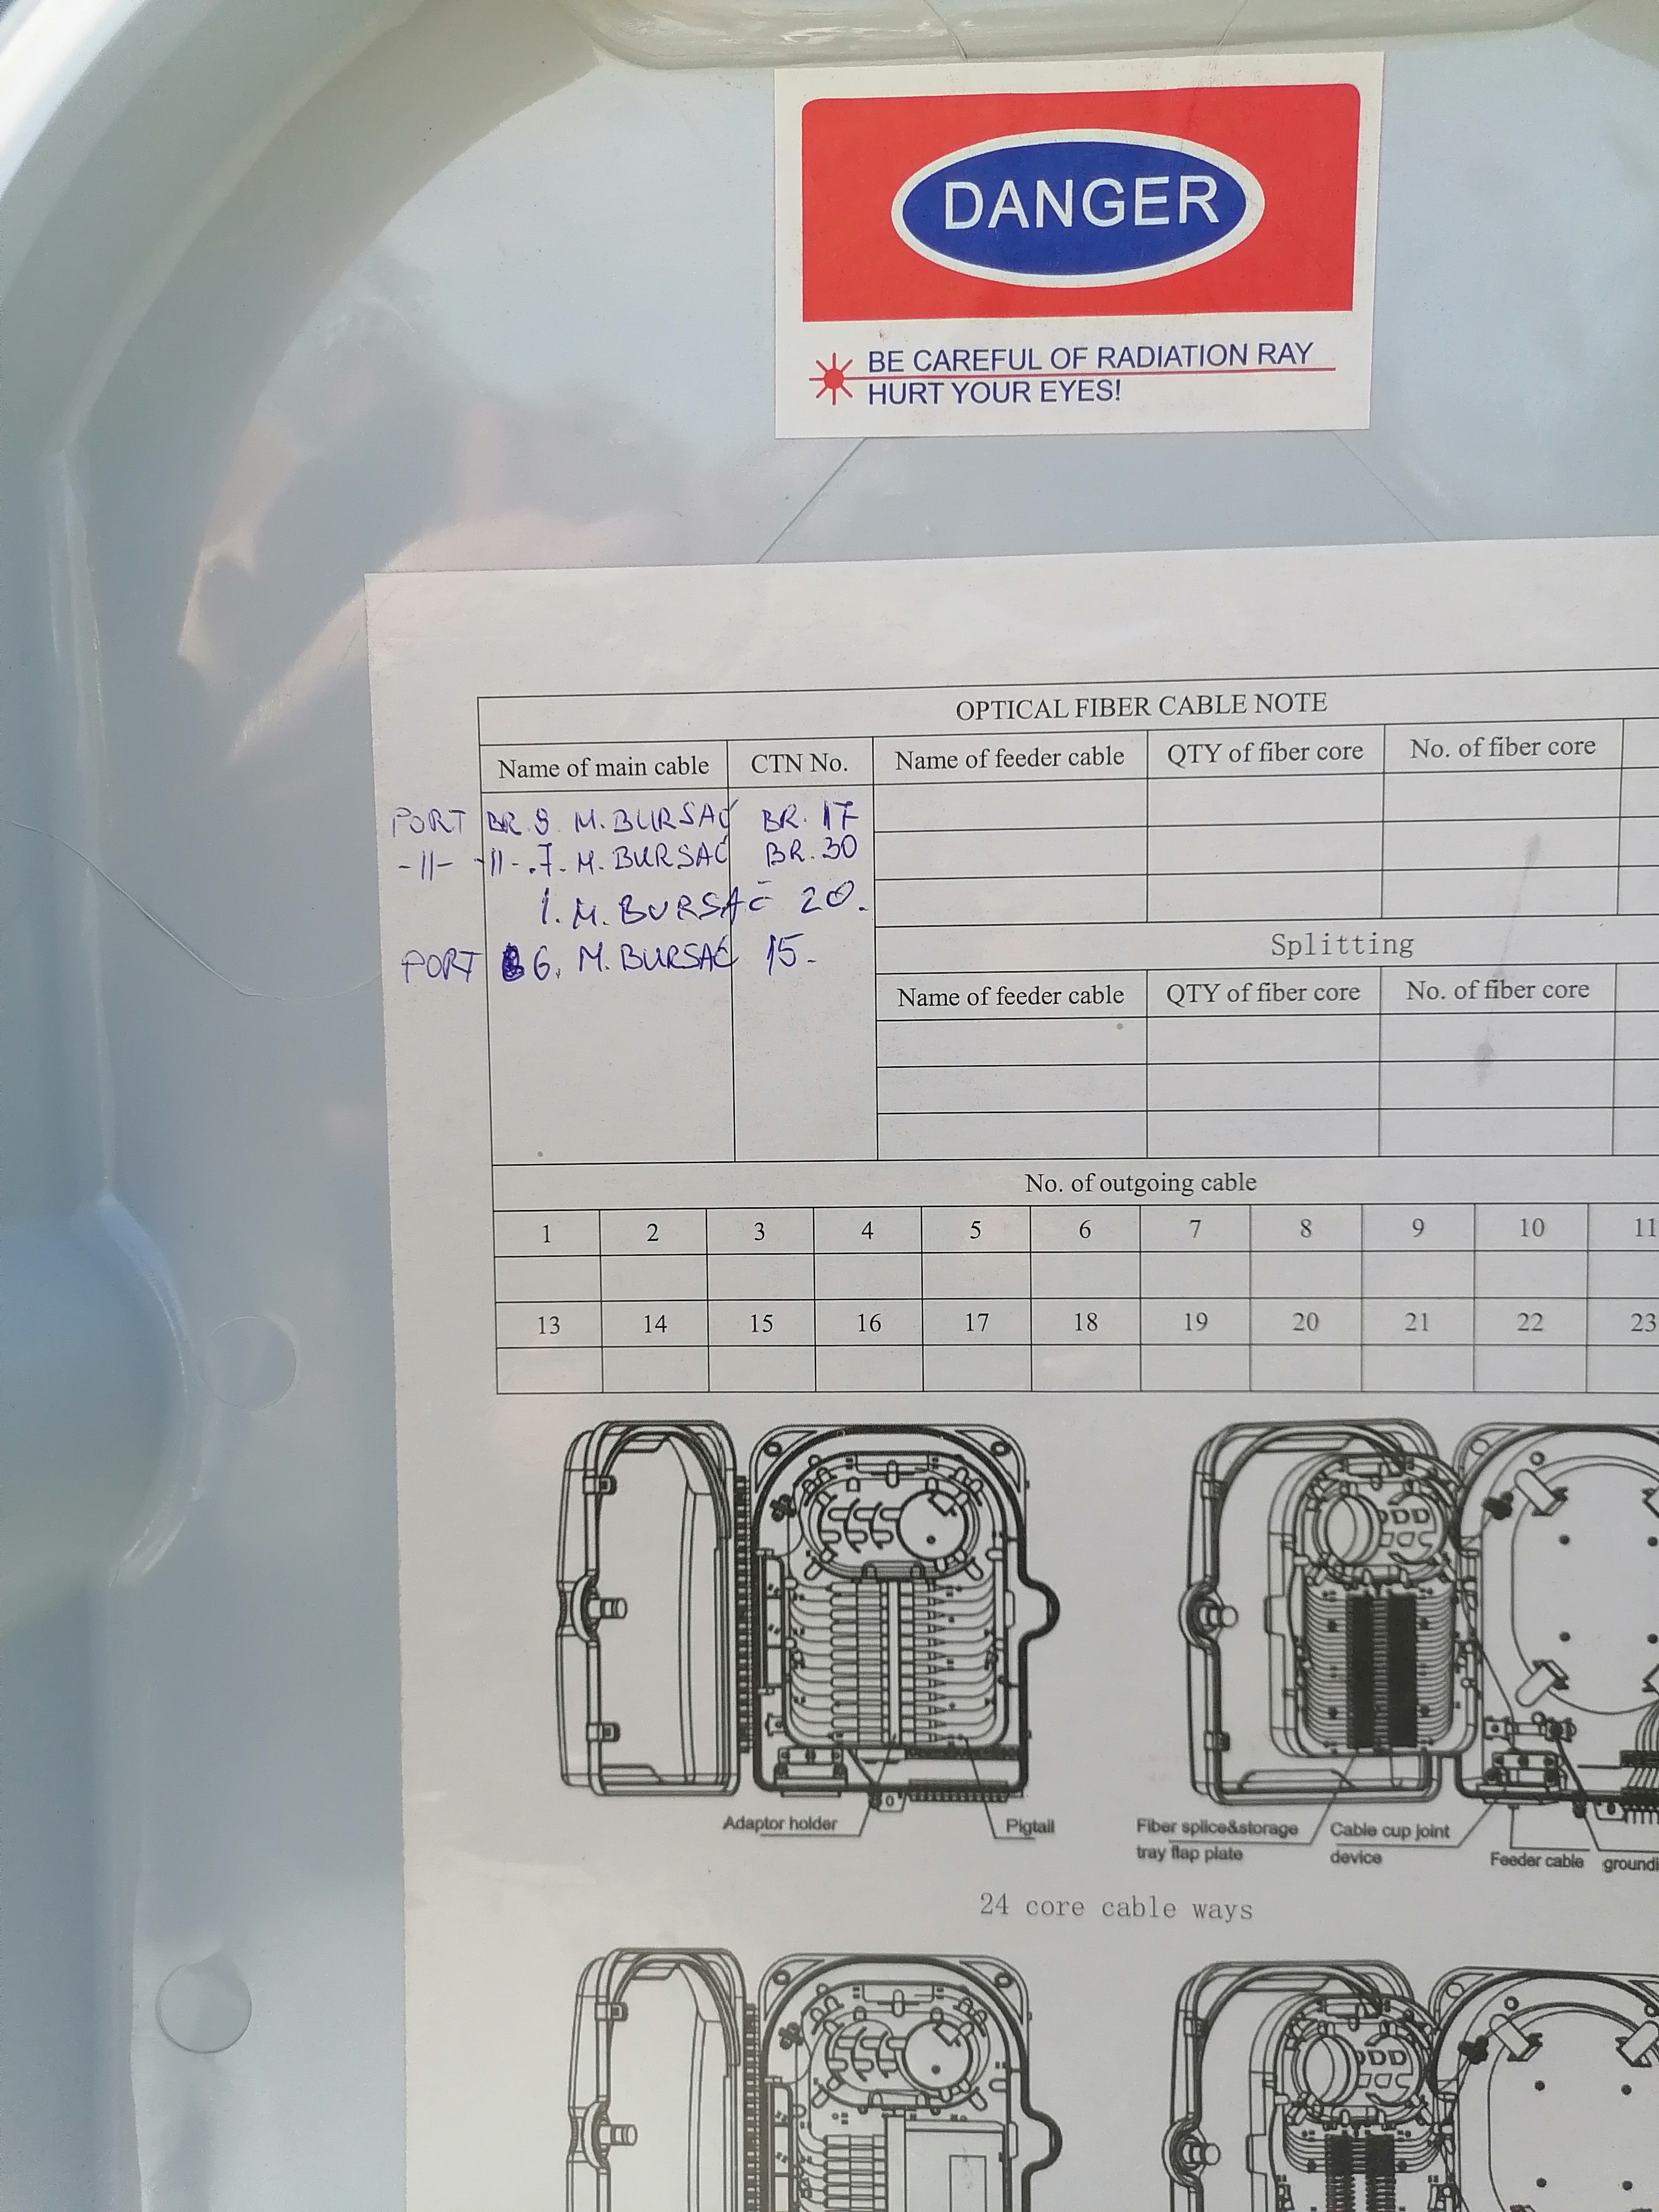 DANGER
BE CAREFUL OF RADIATION RAY
HURT YOUR EYES!
OPTICAL FIBER CABLE NOTE
Name of main cable CTN No. Name of feeder cable QTY of fiber core No. of fiber core
PORT BR. 8 M. BURSAĆ BR. 17
-11- -11-. 7. M. BURSAĆ BR. 30
1. M. BURSAĆ 20.
PORT 6. M. BURSAĆ 15.
Splitting
Name of feeder cable QTY of fiber core No. of fiber core
No. of outgoing cable
1 2 3 4 5 6 7 8 9 10 11
13 14 15 16 17 18 19 20 21 22 23
Adaptor holder Pigtail Fiber splice&storage tray flap plate Cable cup joint device Feeder cable groundi
24 core cable ways